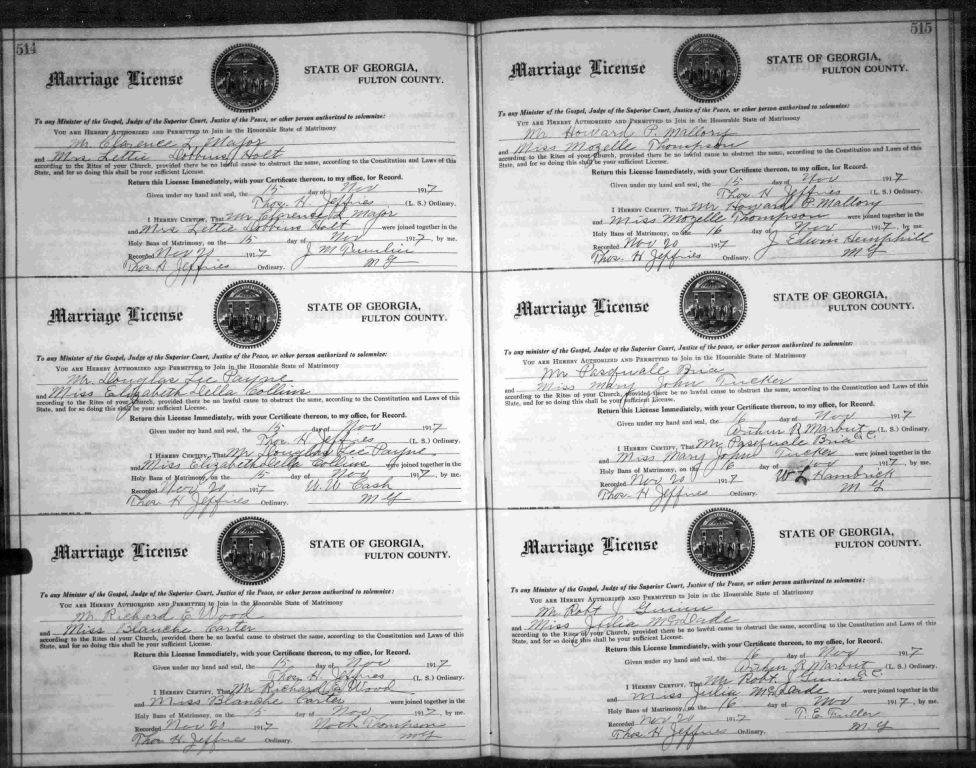 514
Marriage License
STATE OF GEORGIA,
FULTON COUNTY.
To any Minister of the Gospel, Judge of the Superior Court, Justice of the Peace, or other person authorized to solemnize:
YOU ARE HEREBY AUTHORIZED AND PERMITTED to Join in the Honorable State of Matrimony
Mr. Clarence L. Major
and Mrs Lettie Dobbins Holt
according to the Rites of your Church, provided there be no lawful cause to obstruct the same, according to the Constitution and Laws of this
State, and for so doing this shall be your sufficient License.
Return this License Immediately, with your Certificate thereon, to my office, for Record.
Given under my hand and seal, the 15 day of Nov 1917
Thos. H. Jeffries (L. S.) Ordinary.
I HEREBY CERTIFY, That Mr Clarence L Major
and Mrs Lettie Dobbins Holt were joined together in the
Holy Bans of Matrimony, on the 15 day of Nov 1917, by me.
Recorded Nov 1917 J M
Thos H Jeffries Ordinary. M G
Marriage License
STATE OF GEORGIA,
FULTON COUNTY.
To any Minister of the Gospel, Judge of the Superior Court, Justice of the Peace, or other person authorized to solemnize:
YOU ARE HEREBY AUTHORIZED AND PERMITTED to Join in the Honorable State of Matrimony
Mr. Douglas Lee Payne
and Miss Elizabeth Lella Collins
according to the Rites of your Church, provided there be no lawful cause to obstruct the same, according to the Constitution and Laws of this
State, and for so doing this shall be your sufficient License.
Return this License Immediately, with your Certificate thereon, to my office, for Record.
Given under my hand and seal, the 15 day of Nov 1917
Thos H Jeffries (L. S.) Ordinary.
I HEREBY CERTIFY, That Mr Douglas Lee Payne
and Miss Elizabeth Lella Collins were joined together in the
Holy Bans of Matrimony, on the 15 day of Nov 1917, by me.
Recorded Nov 20 1917 W. W. Cash
Thos H Jeffries Ordinary. M G
Marriage License
STATE OF GEORGIA,
FULTON COUNTY.
To any Minister of the Gospel, Judge of the Superior Court, Justice of the Peace, or other person authorized to solemnize:
YOU ARE HEREBY AUTHORIZED AND PERMITTED to Join in the Honorable State of Matrimony
Mr Richard E. Wood
and Miss Blanche Carter
according to the Rites of your Church, provided there be no lawful cause to obstruct the same, according to the Constitution and Laws of this
State, and for so doing this shall be your sufficient License.
Return this License Immediately, with your Certificate thereon, to my office, for Record.
Given under my hand and seal, the 15 day of Nov 1917
Thos H Jeffries (L. S.) Ordinary.
I HEREBY CERTIFY, That Mr Richard E. Wood
and Miss Blanche Carter were joined together in the
Holy Bans of Matrimony, on the 15 day of Nov 1917, by me.
Recorded Nov 20 1917 Thompson
Thos H Jeffries Ordinary. M G
515
Marriage License
STATE OF GEORGIA,
FULTON COUNTY.
To any Minister of the Gospel, Judge of the Superior Court, Justice of the Peace, or other person authorized to solemnize:
YOU ARE HEREBY AUTHORIZED AND PERMITTED to Join in the Honorable State of Matrimony
Mr. Howard P. Mallory
and Miss Mozelle Thompson
according to the Rites of your Church, provided there be no lawful cause to obstruct the same, according to the Constitution and Laws of this
State, and for so doing this shall be your sufficient License.
Return this License Immediately, with your Certificate thereon, to my office, for Record.
Given under my hand and seal, the 15 day of Nov 1917
Thos H Jeffries (L. S.) Ordinary.
I HEREBY CERTIFY, That Mr Howard P. Mallory
and Miss Mozelle Thompson were joined together in the
Holy Bans of Matrimony, on the 16 day of Nov 1917, by me.
Recorded Nov 20 1917 J Edwin Hemphill
Thos. H Jeffries Ordinary. M G
Marriage License
STATE OF GEORGIA,
FULTON COUNTY.
To any minister of the Gospel, Judge of the Superior Court, Justice of the peace, or other person authorized to solemnize:
YOU ARE HEREBY AUTHORIZED AND PERMITTED to Join in the Honorable State of Matrimony
Mr Pasquale Bria
and Miss Mary John Tucker
according to the Rites of your Church, provided there be no lawful cause to obstruct the same, according to the Constitution and Laws of this
State, and for so doing this shall be your sufficient License.
Return this License Immediately, with your Certificate thereon, to my office, for Record.
Given under my hand and seal, the 16 day of Nov 1917
Arthur R Marbut C.C. (L. S.) Ordinary.
I HEREBY CERTIFY, That Mr Pasquale Bria
and Miss Mary John Tucker were joined together in the
Holy Bans of Matrimony, on the 16 day of Nov 1917, by me.
Recorded Nov 20 1917 W L Hambrick
Thos. H Jeffries Ordinary. M G
Marriage License
STATE OF GEORGIA,
FULTON COUNTY.
To any Minister of the Gospel, Judge of the Superior Court, Justice of the Peace, or other person authorized to solemnize:
YOU ARE HEREBY AUTHORIZED AND PERMITTED to Join in the Honorable State of Matrimony
Mr Robt J
and Miss Julia
according to the Rites of your Church, provided there be no lawful cause to obstruct the same, according to the Constitution and Laws of this
State, and for so doing this shall be your sufficient License.
Return this License Immediately, with your Certificate thereon, to my office, for Record.
Given under my hand and seal, the 16 day of Nov 1917
Arthur R Marbut C.C. (L. S.) Ordinary.
I HEREBY CERTIFY, That Mr Robt. J
and Miss Julia were joined together in the
Holy Bans of Matrimony, on the 16 day of Nov 1917, by me.
Recorded Nov 20 1917 T. E. Fuller
Thos H Jeffries Ordinary. M G